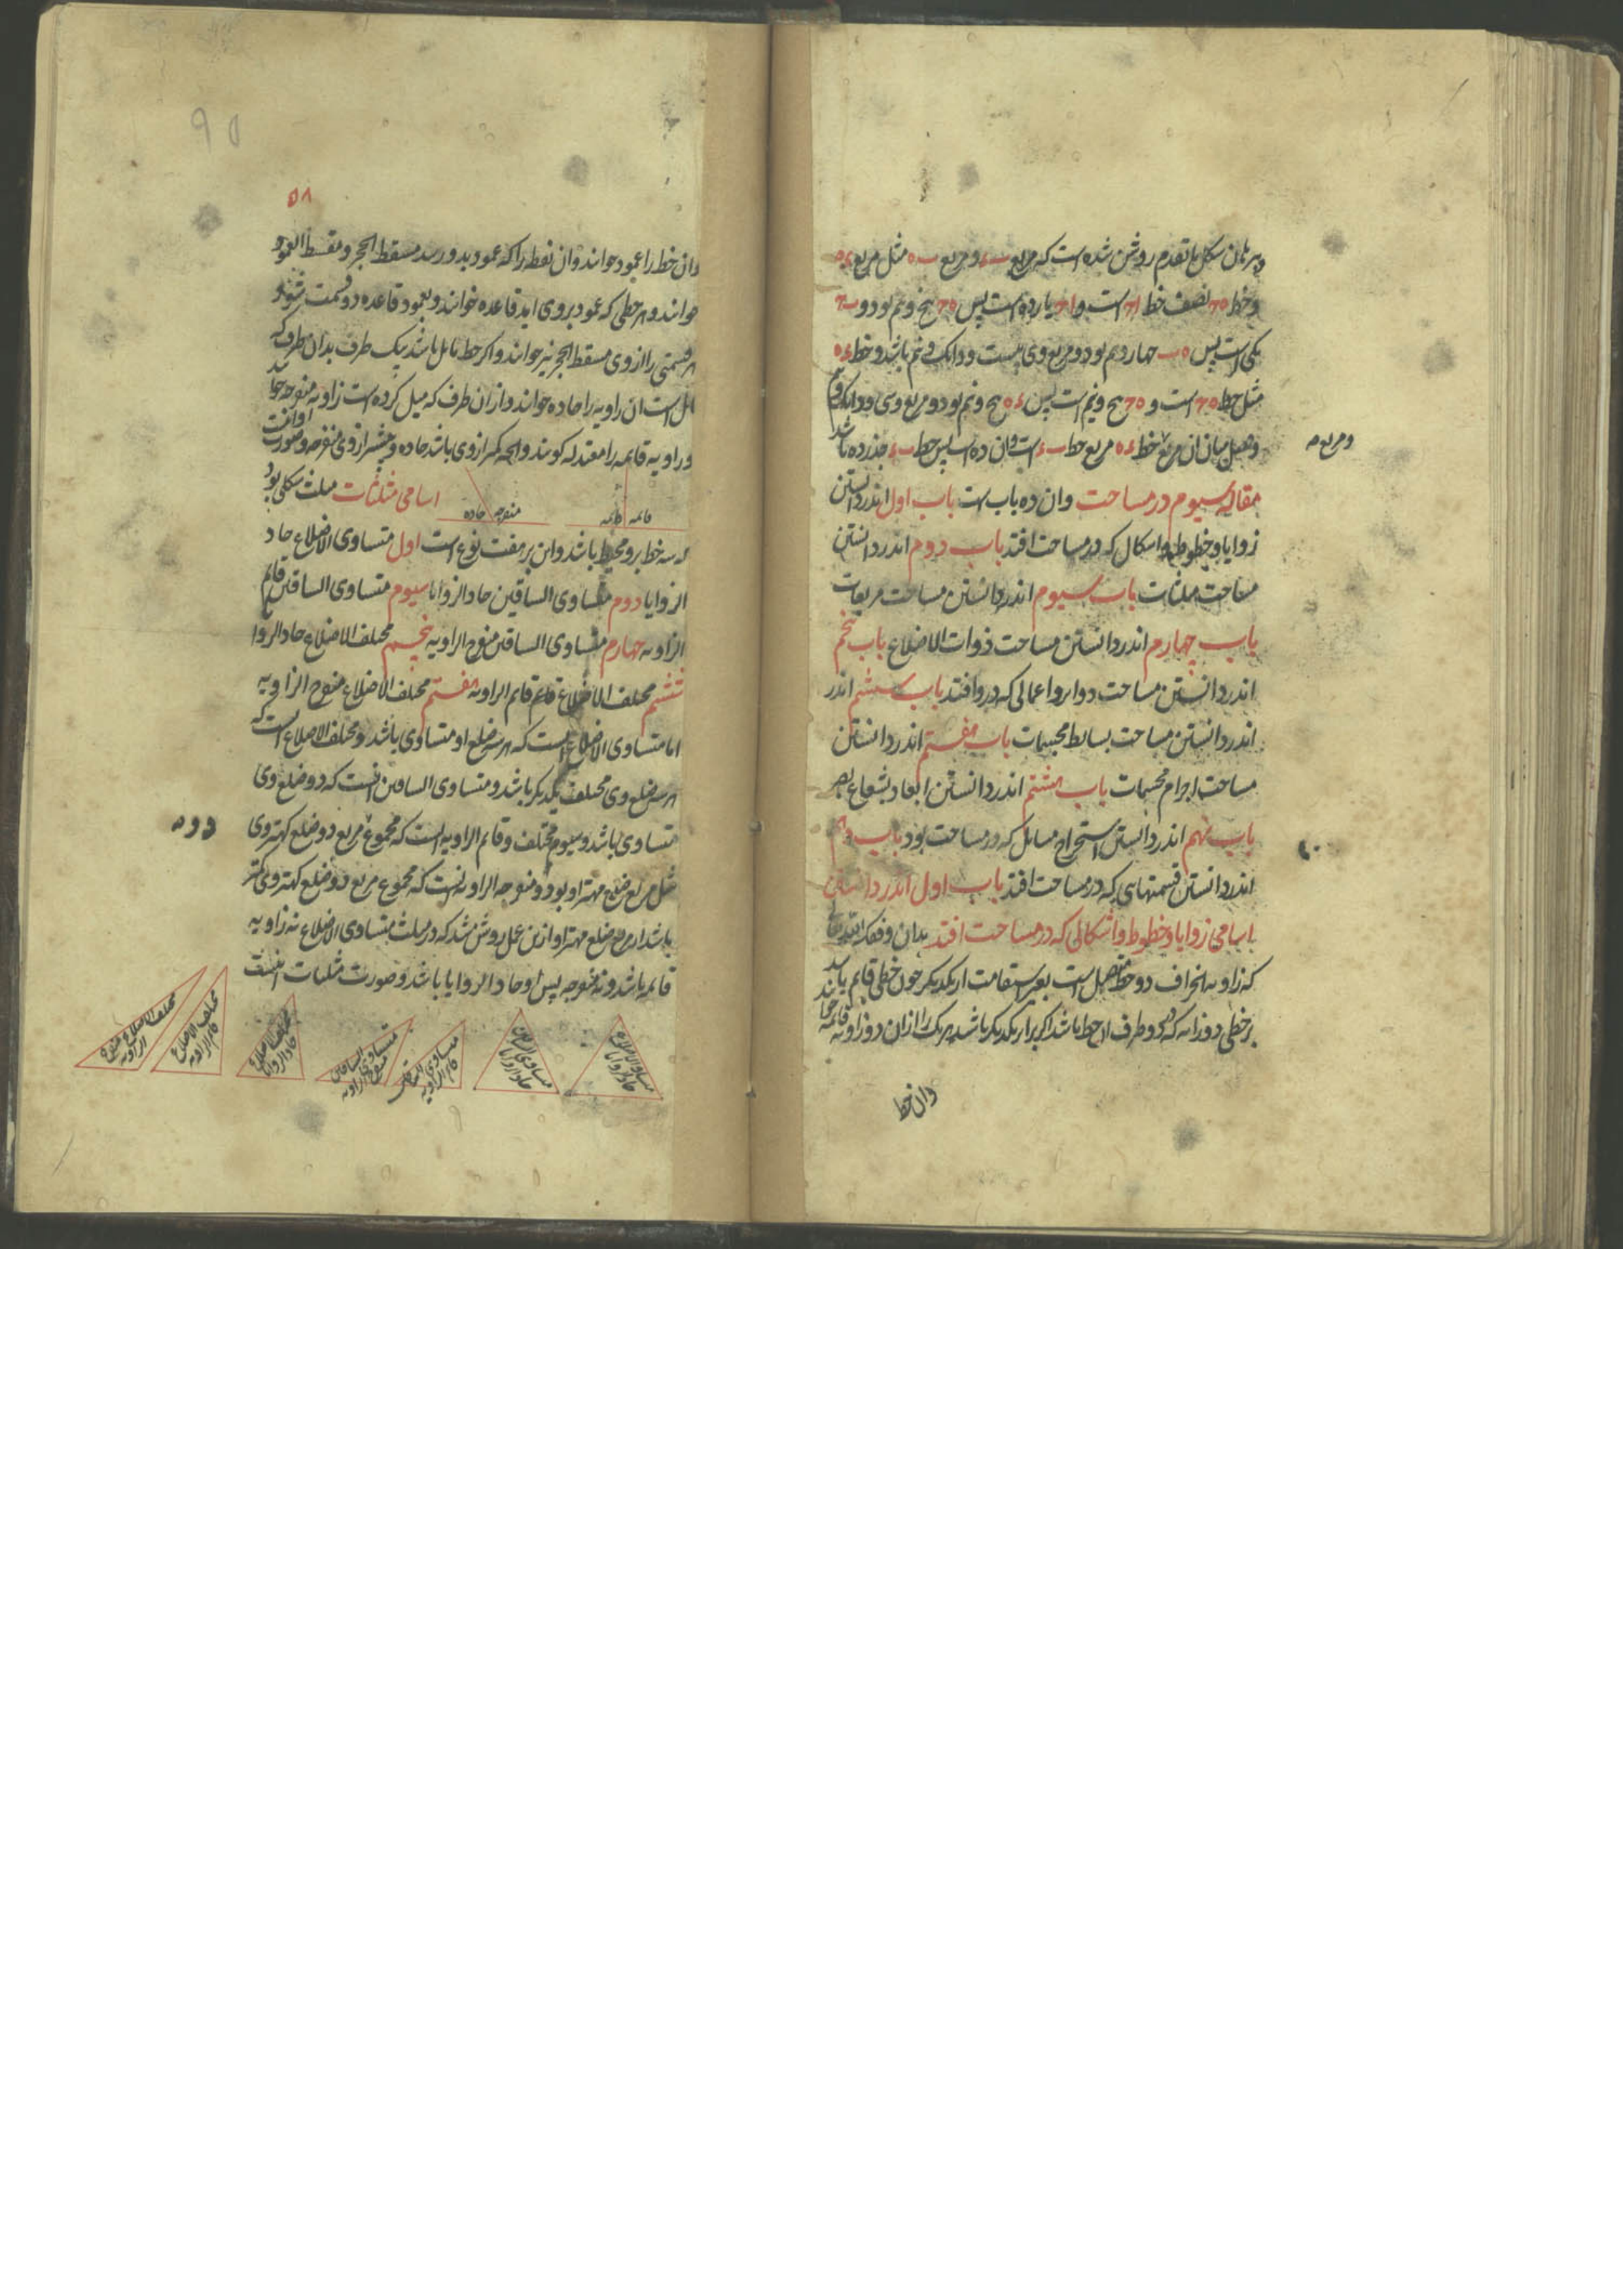 و برهان شکل ما تقدم روشن شده است که مربع ب ء و مربع ب ه مثل مربع ء ه
و خط ه ح نصف خط ا ح است و ا ح یازده است پس ه ح پنج و نیم بود و ب ح
یکی است پس ه ب چهار و نیم بود و مربع وی بیست و دانک و نیم باشد و خط ء ه
مثل خط ه ح است و ه ح پنج و نیم است پس ء ه پنج و نیم بود و مربع وی سی و دانک و نیم
و فضل میان ان مربع خط ء ه مربع خط ب ء است و ان ده است پس خط ب ء جذر ده باشد
و مربع ه
مقاله سیوم در مساحت وان ده باب است باب اول اندر دانستن
زوایا و خطوط و اشکال که در مساحت افتد باب دوم اندر دانستن
مساحت مثلثات باب سیوم اندر دانستن مساحت مربعات
باب چهارم اندر دانستن مساحت ذوات الاضلاع باب پنجم
اندر دانستن مساحت دوایر و اعمالی که درو افتد باب ششم اندر
اندر دانستن مساحت بسایط مجسمات باب هفتم اندر دانستن
مساحت اجرام مجسمات باب هشتم اندر دانستن ابعاد بشعاع بصر
باب نهم اندر دانستن استخراج مسائل که در مساحت بود باب دهم
اندر دانستن قسمتهایی که در مساحت افتد باب اول اندر دانستن
اسامی زوایا و خطوط و اشکالی که در مساحت افتد بدان وفقک الله تعالی
که زاویه انحراف دو خط متصل است بغیر استقامت از یکدیگر چون خطی قایم باشد
بر خطی دو زاویه که در دو طرف ان خط باشد اگر برابر یکدیگر باشد هر یک را از ان دو زاویه قائمه خوانند
وان خط
۵۸
وان خط را عمود خوانند وان نقطه را که عمود بدو رسد مسقط الحجر و مسقط العمود
خوانند و هر خطی که عمود بروی اید قاعده خوانند و بعمود قاعده دو قسمت شود
هر قسمتی را از وی مسقط الحجر نیز خوانند و اگر خط مایل باشد بیک طرف بدان طرف که
مایل است ان زاویه را حاده خوانند و از ان طرف که میل کرده است زاویه منفرجه خوانند
و زاویه قایمه را معتدله گویند و انچه کمتر از وی باشد حاده و بیشتر از وی منفرجه و صورت او انست
قائمه قائمه
منفرجه حاده
اسامی مثلثات مثلث شکلی بود
که سه خط برو محیط باشد و این بر هفت نوع است اول متساوی الاضلاع حاد
الزوایا دوم متساوی الساقین حاد الزوایا سیوم متساوی الساقین قایم
الزاویه چهارم متساوی الساقین منفرج الزاویه پنجم مختلف الاضلاع حاد الزوایا
ششم مختلف الاضلاع قایم الزاویه هفتم مختلف الاضلاع منفرج الزاویه
اما متساوی الاضلاع انست که هر سه ضلع او متساوی باشد و مختلف الاضلاع انست که
هر سه ضلع وی مختلف یکدیگر باشد و متساوی الساقین انست که دو ضلع وی
متساوی باشد و سیوم مختلف و قایم الزاویه انست که مجموع مربع دو ضلع کهتر وی
مثل مربع ضلع مهتر او بود و منفرجه الزاویه انست که مجموع مربع دو ضلع کهتر وی کمتر
باشد از مربع ضلع مهتر او ازین عمل روشن شد که در مثلث متساوی الاضلاع نه زاویه
قایمه باشد و نه منفرجه پس او حاد الزوایا باشد و صورت مثلثات اینست
متساوی الاضلاع حاد الزوایا
متساوی الساقین حاد الزوایا
متساوی الساقین قایم الزاویه
متساوی الساقین منفرج الزاویه
مختلف الاضلاع حاد الزوایا
مختلف الاضلاع قایم الزاویه
مختلف الاضلاع منفرج الزاویه